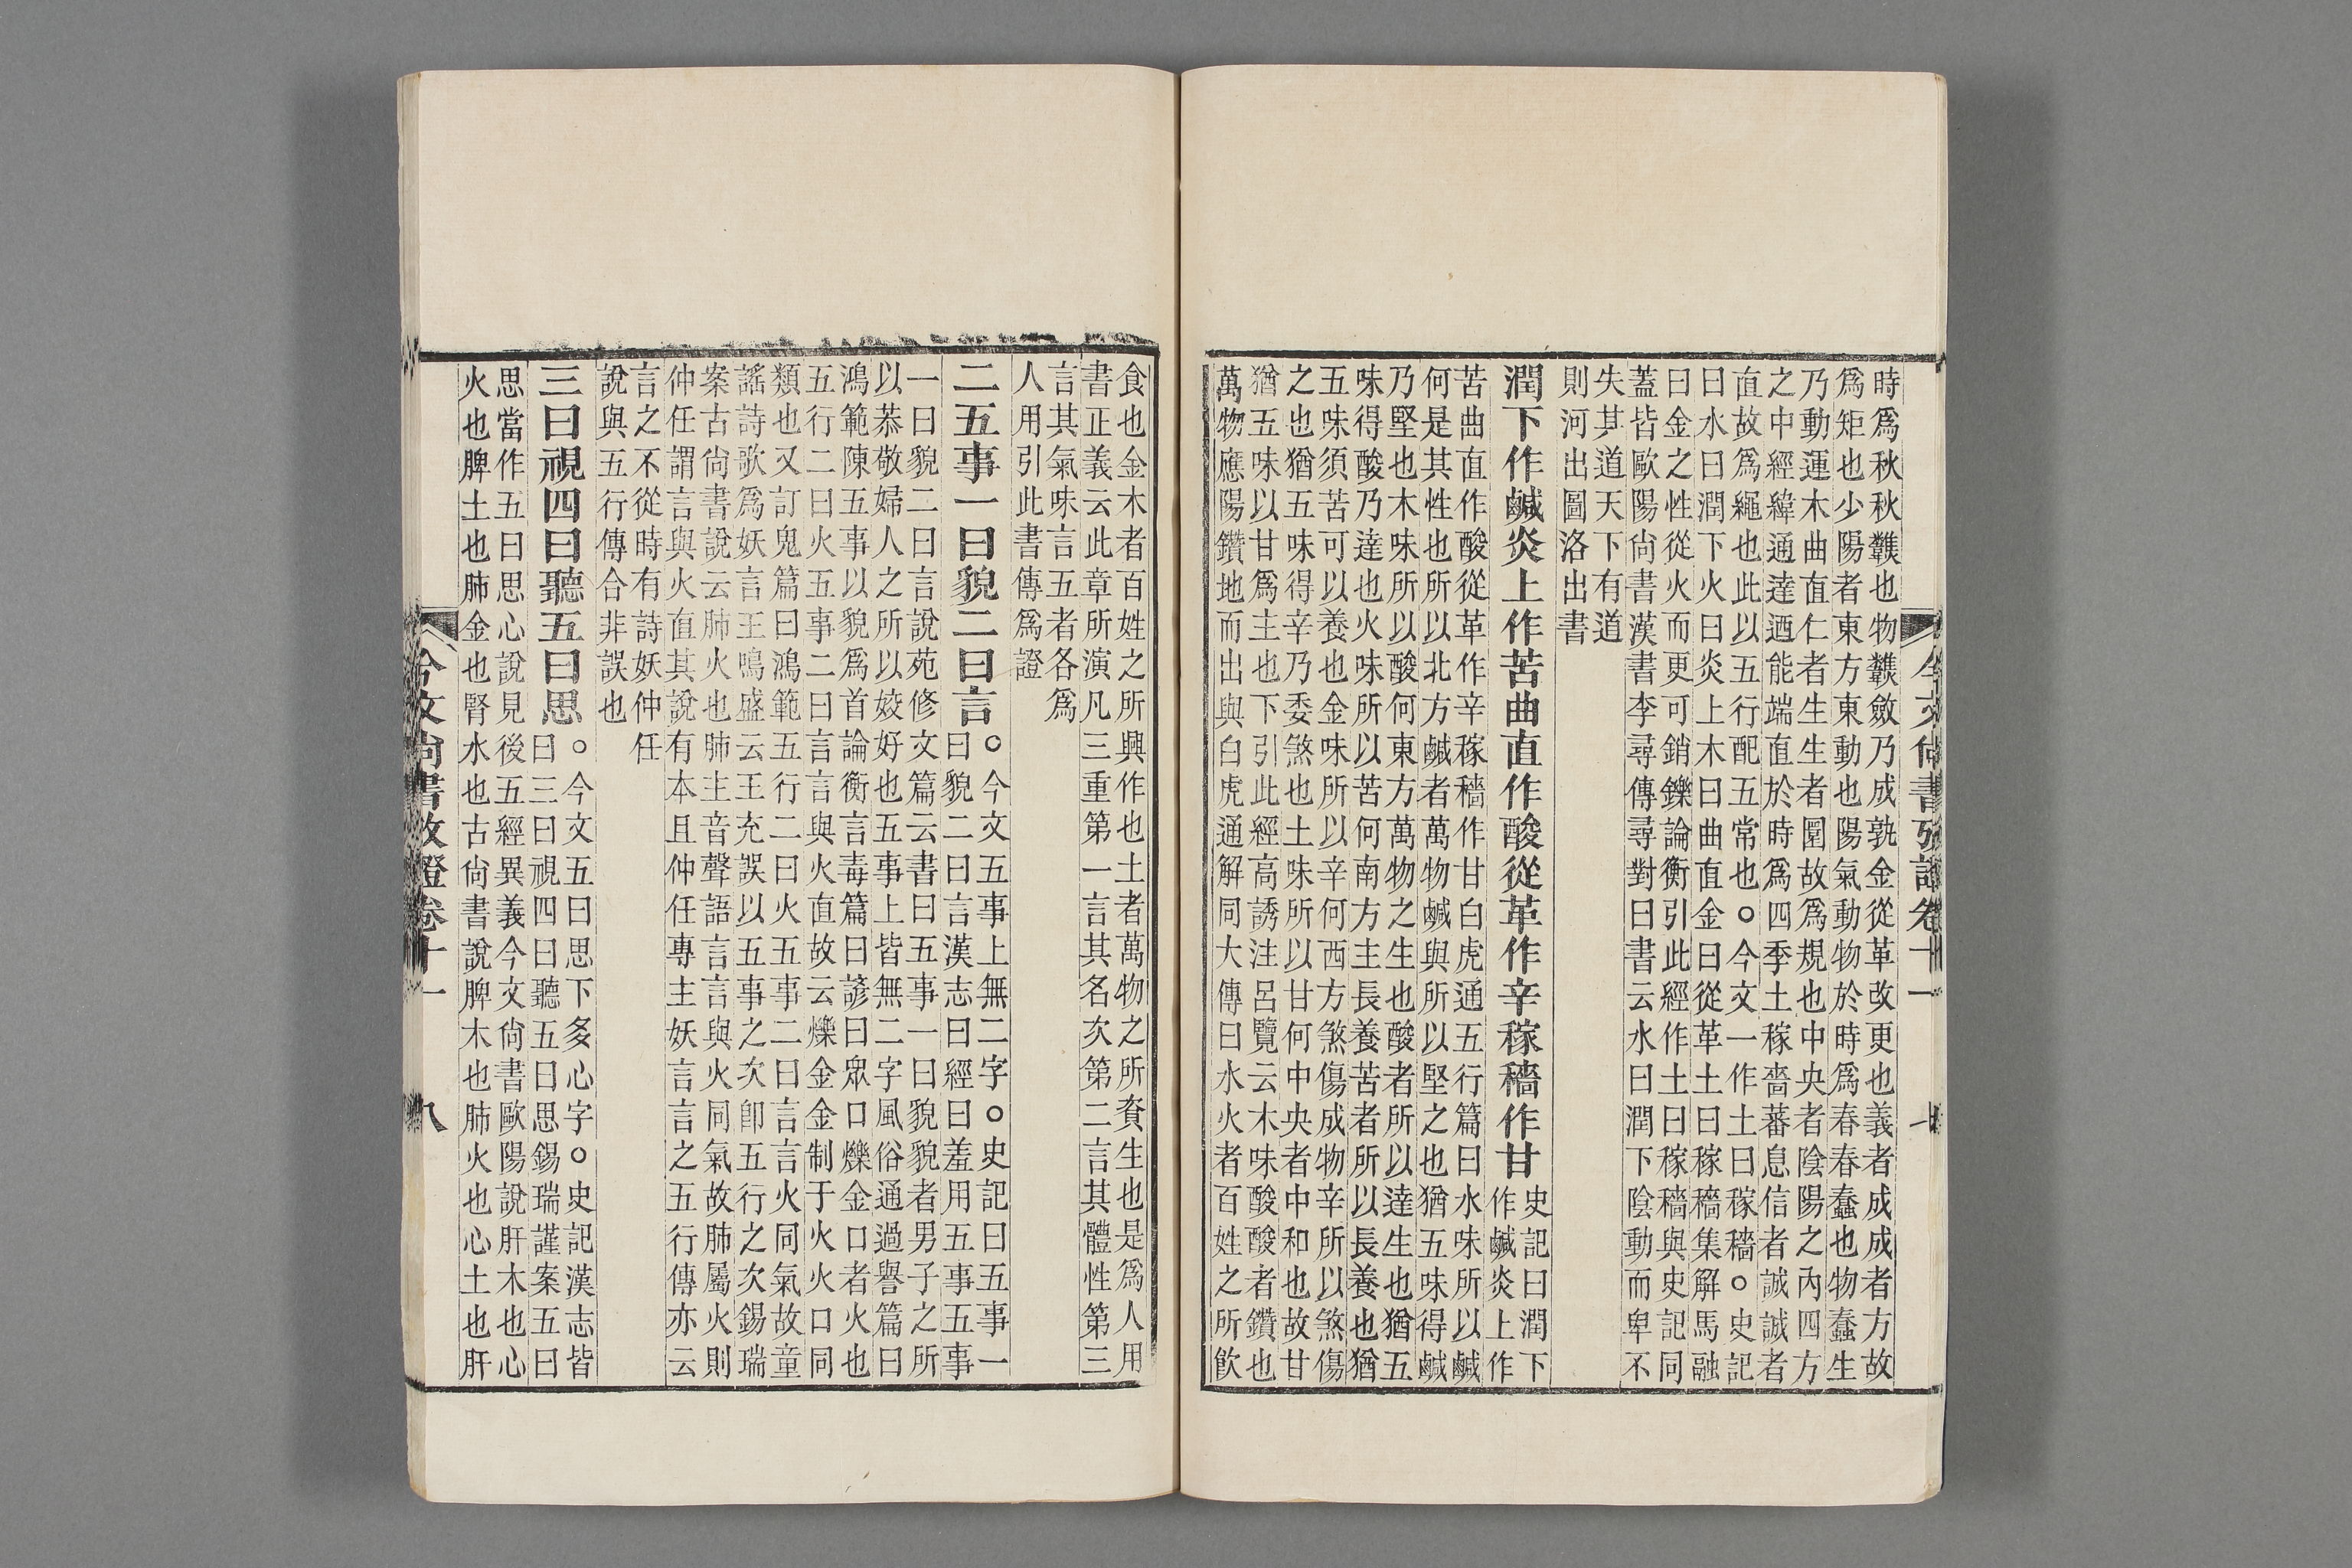 今文尚書攷證卷十一
七
時爲秋秋𪛁也物𪛁斂乃成孰金從革改更也義者成成者方故
爲矩也少陽者東方東動也陽氣動物於時爲春春蠢也物蠢生
乃動運木曲直仁者生生者圜故爲規也中央者陰陽之內四方
之中經緯通達迺能端直於時爲四季土稼嗇蕃息信者誠誠者
直故爲繩也此以五行配五常也○今文一作土曰稼穡○史記
曰水曰潤下火曰炎上木曰曲直金曰從革土曰稼穡集解馬融
曰金之性從火而更可銷鑠論衡引此經作土曰稼穡與史記同
蓋皆歐陽尙書漢書李尋傳尋對曰書云水曰潤下陰動而卑不
失其道天下有道
則河出圖洛出書
潤下作鹹炎上作苦曲直作酸從革作辛稼穡作甘
史記曰潤下
作鹹炎上作
苦曲直作酸從革作辛稼穡作甘白虎通五行篇曰水味所以鹹
何是其性也所以北方鹹者萬物鹹與所以堅之也猶五味得鹹
乃堅也木味所以酸何東方萬物之生也酸者所以達生也猶五
味得酸乃達也火味所以苦何南方主長養苦者所以長養也猶
五味須苦可以養也金味所以辛何西方煞傷成物辛所以煞傷
之也猶五味得辛乃委煞也土味所以甘何中央者中和也故甘
猶五味以甘爲主也下引此經高誘注呂覽云木味酸酸者鑽也
萬物應陽鑽地而出與白虎通解同大傳曰水火者百姓之所飮
食也金木者百姓之所興作也土者萬物之所資生也是爲人用
書正義云此章所演凡三重第一言其名次第二言其體性第三
言其氣味言五者各爲
人用引此書傳爲證
二五事一曰貌二曰言
○今文五事上無二字○史記曰五事一
曰貌二曰言漢志曰經曰羞用五事五事
一曰貌二曰言說苑修文篇云書曰五事一曰貌貌者男子之所
以恭敬婦人之所以姣好也五事上皆無二字風俗通過譽篇曰
鴻範陳五事以貌爲首論衡言毒篇曰諺曰眾口爍金口者火也
五行二曰火五事二曰言言與火直故云爍金金制于火火口同
類也又訂鬼篇曰鴻範五行二曰火五事二曰言言火同氣故童
謠詩歌爲妖言王鳴盛云王充誤以五事之次卽五行之次錫瑞
案古尙書說云肺火也肺主音聲語言言與火同氣故肺屬火則
仲任謂言與火直其說有本且仲任專主妖言言之五行傳亦云
言之不從時有詩妖仲任
說與五行傳合非誤也
三曰視四曰聽五曰思
○今文五曰思下多心字○史記漢志皆
曰三曰視四曰聽五曰思錫瑞謹案五曰
思當作五曰思心說見後五經異義今文尙書歐陽說肝木也心
火也脾土也肺金也腎水也古尙書說脾木也肺火也心土也肝
今文尙書攷證卷十一
八